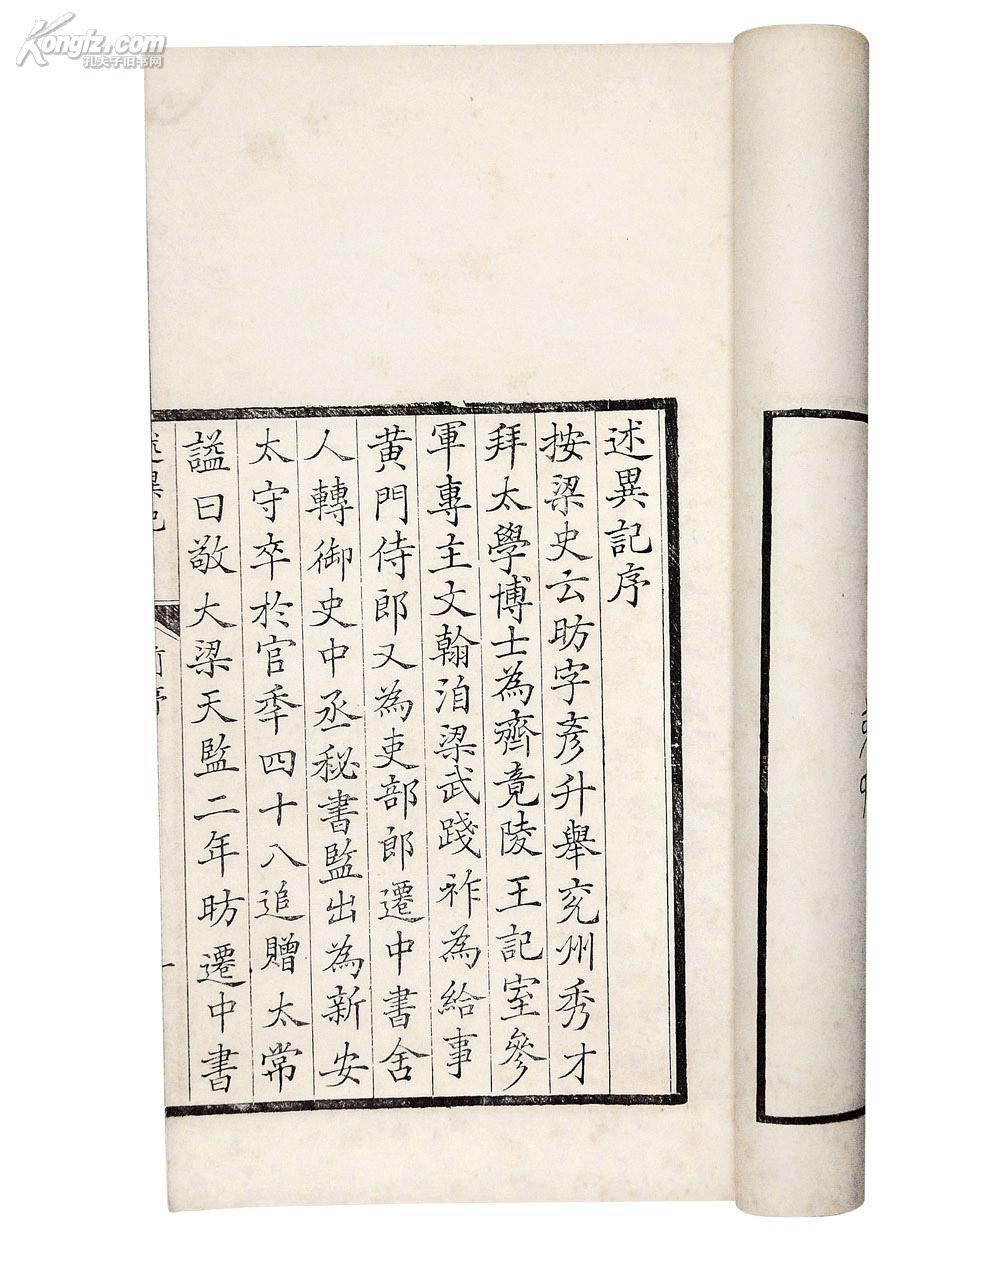 述異記序
按梁史云昉字彥升舉兗州秀才
拜太學博士為齊竟陵王記室參
軍專主文翰洎梁武踐祚為給事
黃門侍郎又為吏部郎遷中書舍
人轉御史中丞秘書監出為新安
太守卒於官秊四十八追贈太常
謚曰敬大梁天監二年昉遷中書
述異記 前序 一
Kongfz.com
孔夫子旧书网